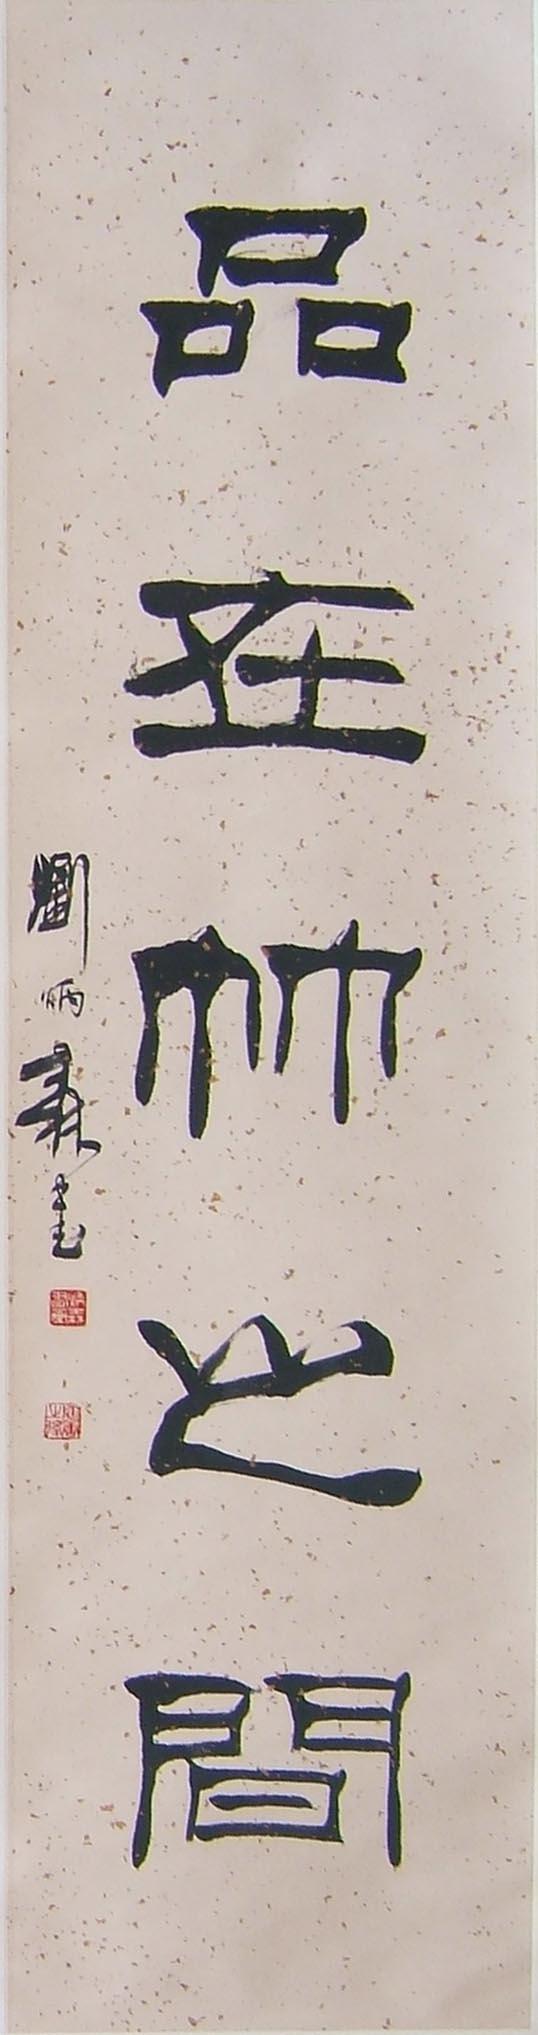 品在竹之間
劉炳森書